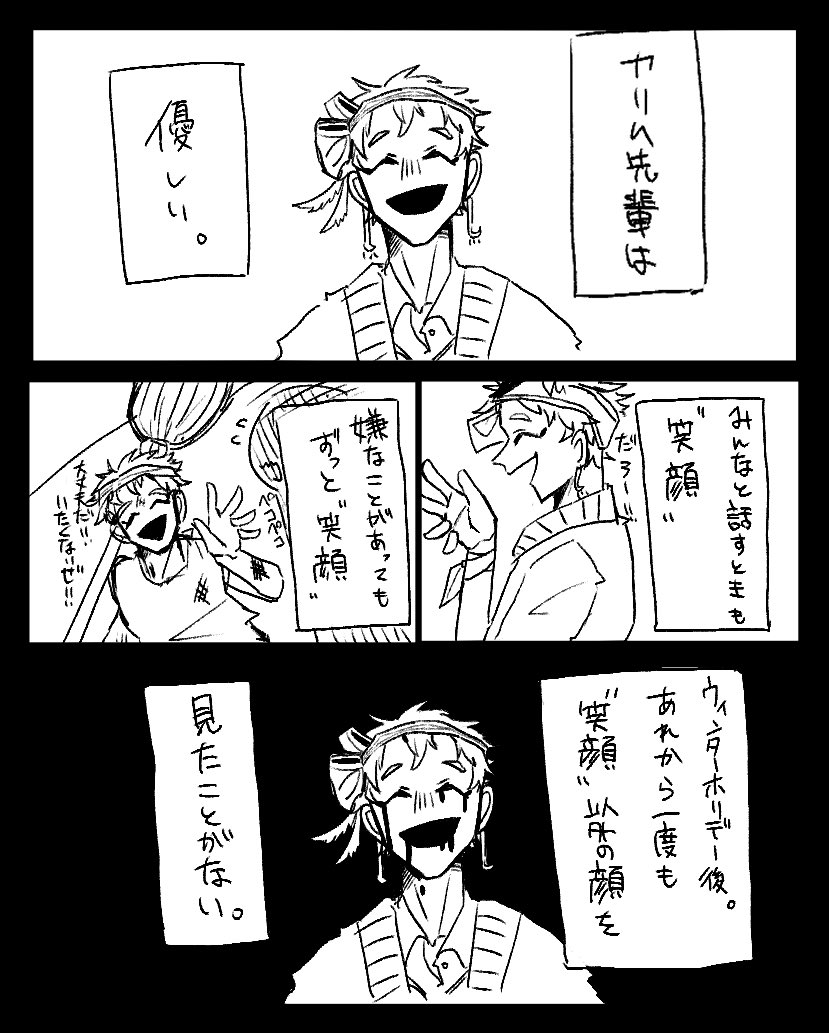 カリム先輩は
優しい。
みんなと話すときも
"笑顔"
だろー!!
嫌なことがあっても
ずっと"笑顔"
ペコペコ
大丈夫だ!!
いたくないぜ!!
ウィンターホリデー後。
あれから一度も
"笑顔"以外の顔を
見たことがない。